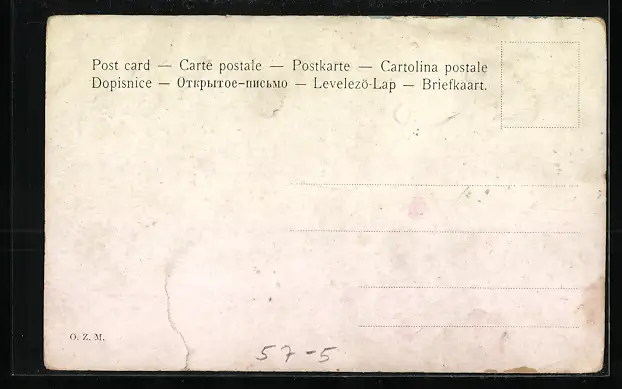 Post card — Carte postale — Postkarte — Cartolina postale
Dopisnice — Открытое-письмо — Levelezö-Lap — Briefkaart.
O. Z. M.
57-5